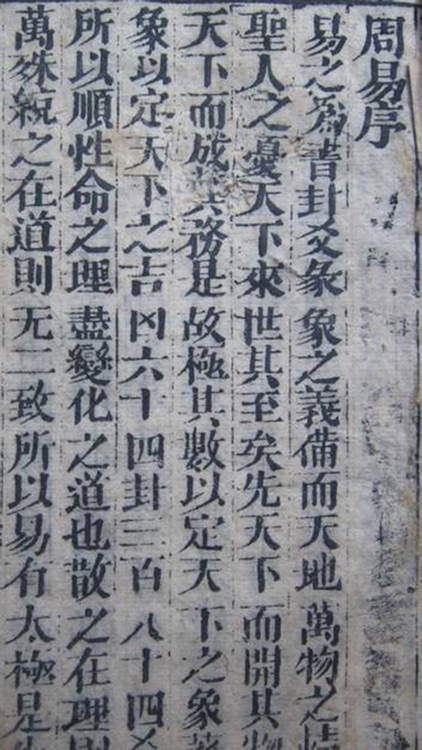 周易序
易之爲書卦爻彖象之義備而天地萬物之情
聖人之憂天下來世其至矣先天下而開其物
天下而成其務是故極其數以定天下之象著
象以定天下之吉凶六十四卦三百八十四爻
所以順性命之理盡變化之道也散之在理則
萬殊統之在道則无二致所以易有太極是